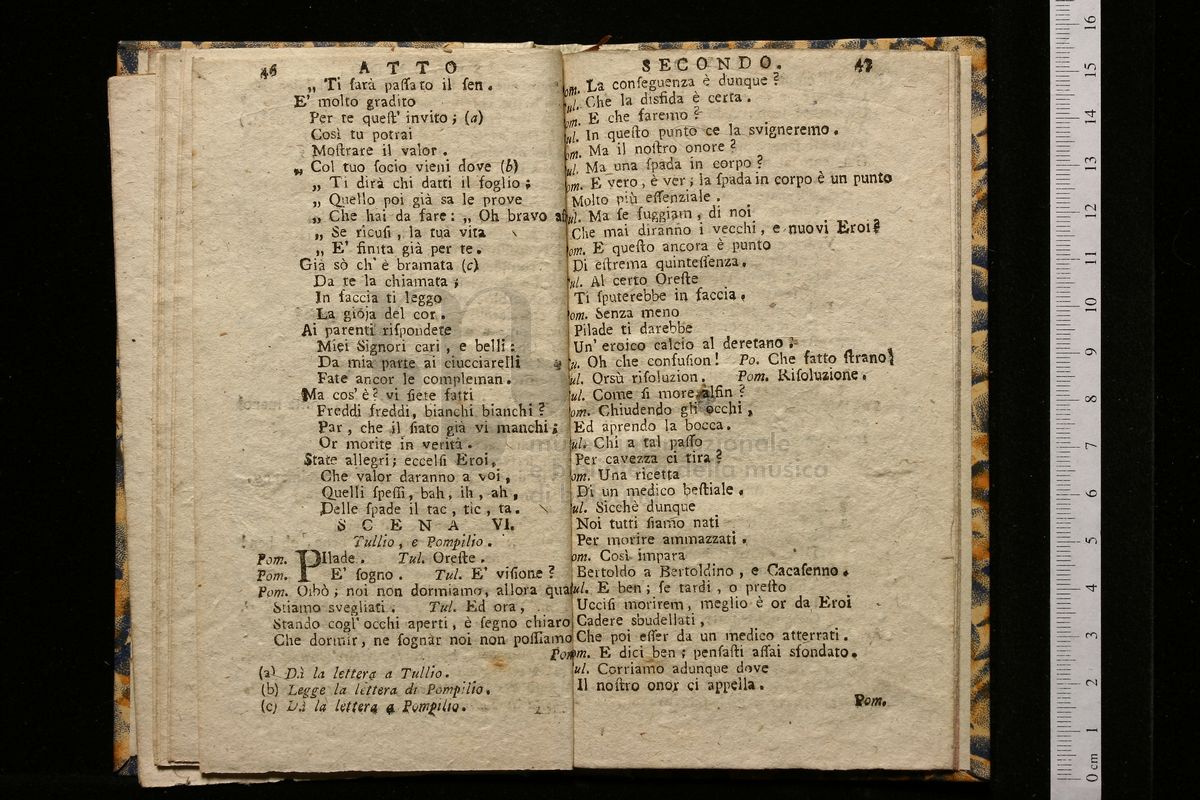 46 ATTO
„ Ti sarà passato il sen.
E' molto gradito
Per te quest' invito; (a)
Così tu potrai
Mostrare il valor.
„ Col tuo socio vieni dove (b)
„ Ti dirà chi datti il foglio;
„ Quello poi già sa le prove
„ Che hai da fare: „ Oh bravo
„ Se ricusi, la tua vita
„ E' finita già per te.
Già sò ch' è bramata (c)
Da te la chiamata;
In faccia ti leggo
La gioja del cor.
Ai parenti rispondete
Miei Signori cari, e belli:
Da mia parte ai ciucciarelli
Fate ancor le compleman.
Ma cos' è? vi siete fatti
Freddi freddi, bianchi bianchi?
Par, che il fiato già vi manchi;
Or morite in verità.
State allegri; eccelsi Eroi,
Che valor daranno a voi,
Quelli spessi, bah, ih, ah,
Delle spade il tac, tic, ta.
SCENA VI.
Tullio, e Pompilio.
Pom. PIlade. Tul. Oreste.
Pom. E' sogno. Tul. E' visione?
Pom. Oibò; noi non dormiamo, allora qua
Stiamo svegliati. Tul. Ed ora,
Stando cogl' occhi aperti, è segno chiaro
Che dormir, ne sognar noi non possiamo
Pom
(a) Dà la lettera a Tullio.
(b) Legge la lettera di Pompilio.
(c) Dà la lettera a Pompilio.
SECONDO. 47
om. La conseguenza è dunque?
ul. Che la disfida è certa.
om. E che faremo?
ul. In questo punto ce la svigneremo.
om. Ma il nostro onore?
ul. Ma una spada in corpo?
om. E vero, è ver; la spada in corpo è un punto
Molto più essenziale.
ul. Ma se fuggiam, di noi
Che mai diranno i vecchi, e nuovi Eroi?
om. E questo ancora è punto
Di estrema quintessenza.
ul. Al certo Oreste
Ti sputerebbe in faccia.
om. Senza meno
Pilade ti darebbe
Un' eroico calcio al deretano.
u. Oh che confusion! Po. Che fatto strano!
ul. Orsù risoluzion. Pom. Risoluzione.
ul. Come si more alfin?
om. Chiudendo gli occhi,
Ed aprendo la bocca.
ul. Chi a tal passo
Per cavezza ci tira?
om. Una ricetta
Di un medico bestiale.
ul. Sicchè dunque
Noi tutti siamo nati
Per morire ammazzati.
om. Così impara
Bertoldo a Bertoldino, e Cacasenno.
ul. E ben; se tardi, o presto
Uccisi morirem, meglio è or da Eroi
Cadere sbudellati,
Che poi esser da un medico atterrati.
om. E dici ben; pensasti assai sfondato.
ul. Corriamo adunque dove
Il nostro onor ci appella.
Pom.
museo internazionale
e biblioteca della musica
di bologna
0 cm 1 2 3 4 5 6 7 8 9 10 11 12 13 14 15 16